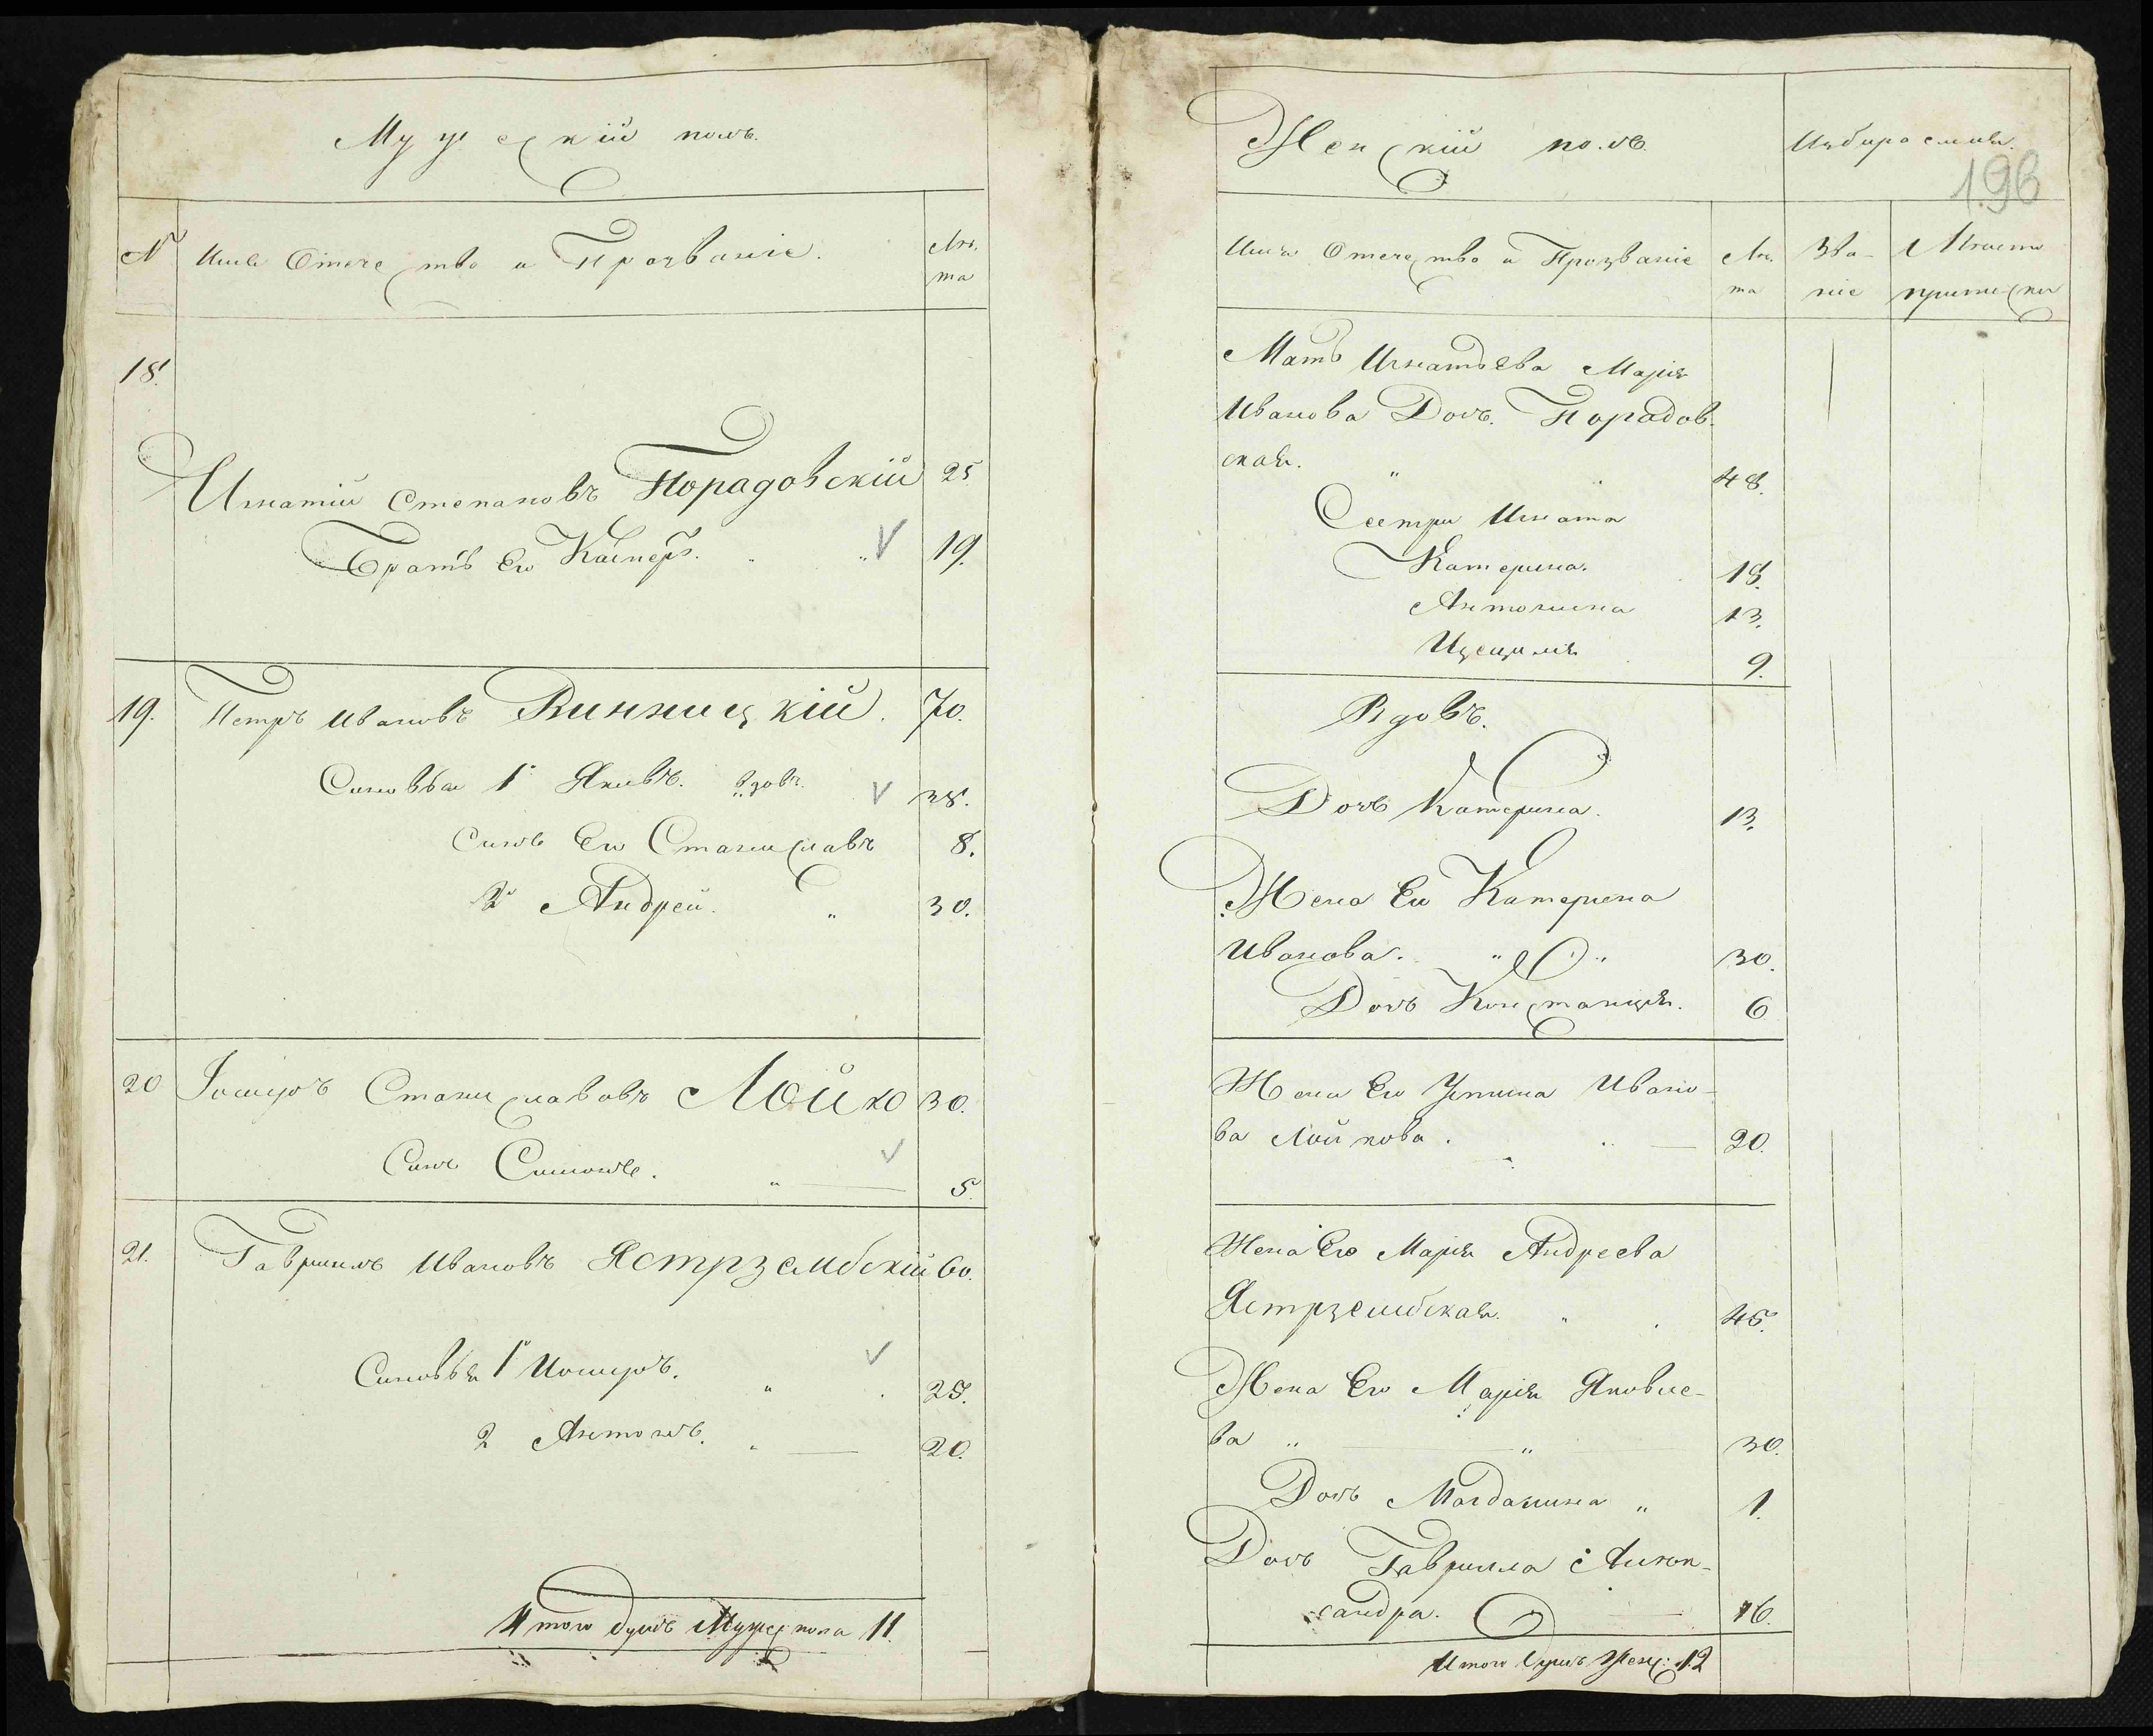 Мужескій полъ.
N Имя Отечество и Прозваніе. Лѣ-
та
18.
Игнатій Степановъ Порадовскій 25
Братъ Его Касперъ. 19.
19. Петръ Ивановъ Винницкій. 70.
Синовья 1й Якивъ. вдовъ. 38.
Синъ Его Станиславъ 8.
2й Андрей. 30.
20 Іосифъ Станиславовъ Лойко 30.
Синъ Симонъ. 5.
21. Гавриилъ Ивановъ Ястрзембскій 60.
Синовья 1й Иосифъ. 25.
2 Антонъ. 20.
Итого душъ Мужес пола 11.
Женскій полъ. Избираемыя.
198
Имя Отечество и Прозваніе Лѣ- Зва- Место
та ніе приписки
Мать Игнатьева Марія
Иванова Дочь. Порадов-
ская. 48.
Сестри Игната
Катерина. 18.
Антонина 13.
Цецилія 9.
Вдовъ.
Дочь Катерина. 13.
Жена Его Катерина
Иванова. 30.
Дочь Констанція. 6
Жена Его Устина Ивано-
ва Лойкова. 20.
Жена Его Марія Андреева
Ястрзембская. 45.
Жена Его Марія Яковле-
ва 30.
Дочь Магдалина 1.
Дочь Гаврилла Алек-
сандра. 16.
Итого душъ Женс: 12